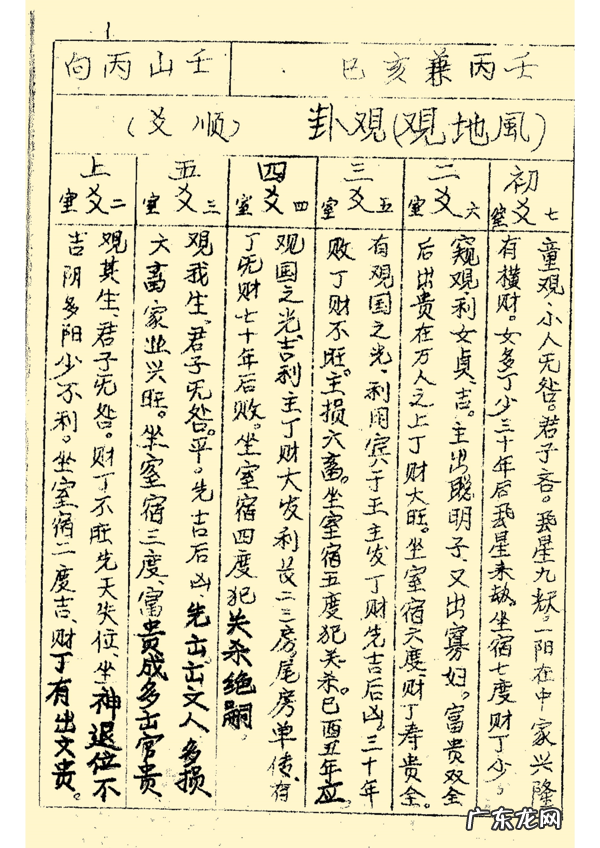 壬丙兼亥巳
壬山丙向
(風地观)观卦
(顺爻)
初爻
室七
童观、小人无咎。君子吝。
一阳在中家兴隆
有横财。女多丁少三十年后
星来劫。坐宿七度财丁少。
二爻
室六
窥观利女贞、吉。主出聪明子、又出寡妇。富贵双全
后出贵在万人之上丁财大旺。坐室宿六度、财丁寿贵全。
三爻
室五
有观国之光、利用宾于王主发丁财先吉后凶。三十年
败丁财不旺。主损六畜。坐室宿五度犯关杀。巳酉丑年应。
四爻
室四
观国之光、吉利主丁财大发利长二三房。尾房单传、存
丁无财七十年后败。坐室宿四度犯关杀绝嗣。
五爻
室三
观我生、君子无咎。平。先吉后凶先出文人多损
六畜家业兴旺。坐室宿三度、富贵成多出官贵
上爻
室二
观其生、君子无咎。财丁不旺先天失位、坐神退位不
吉阴多阳少不利。坐室宿二度吉、财丁有出文贵。
广东龙网